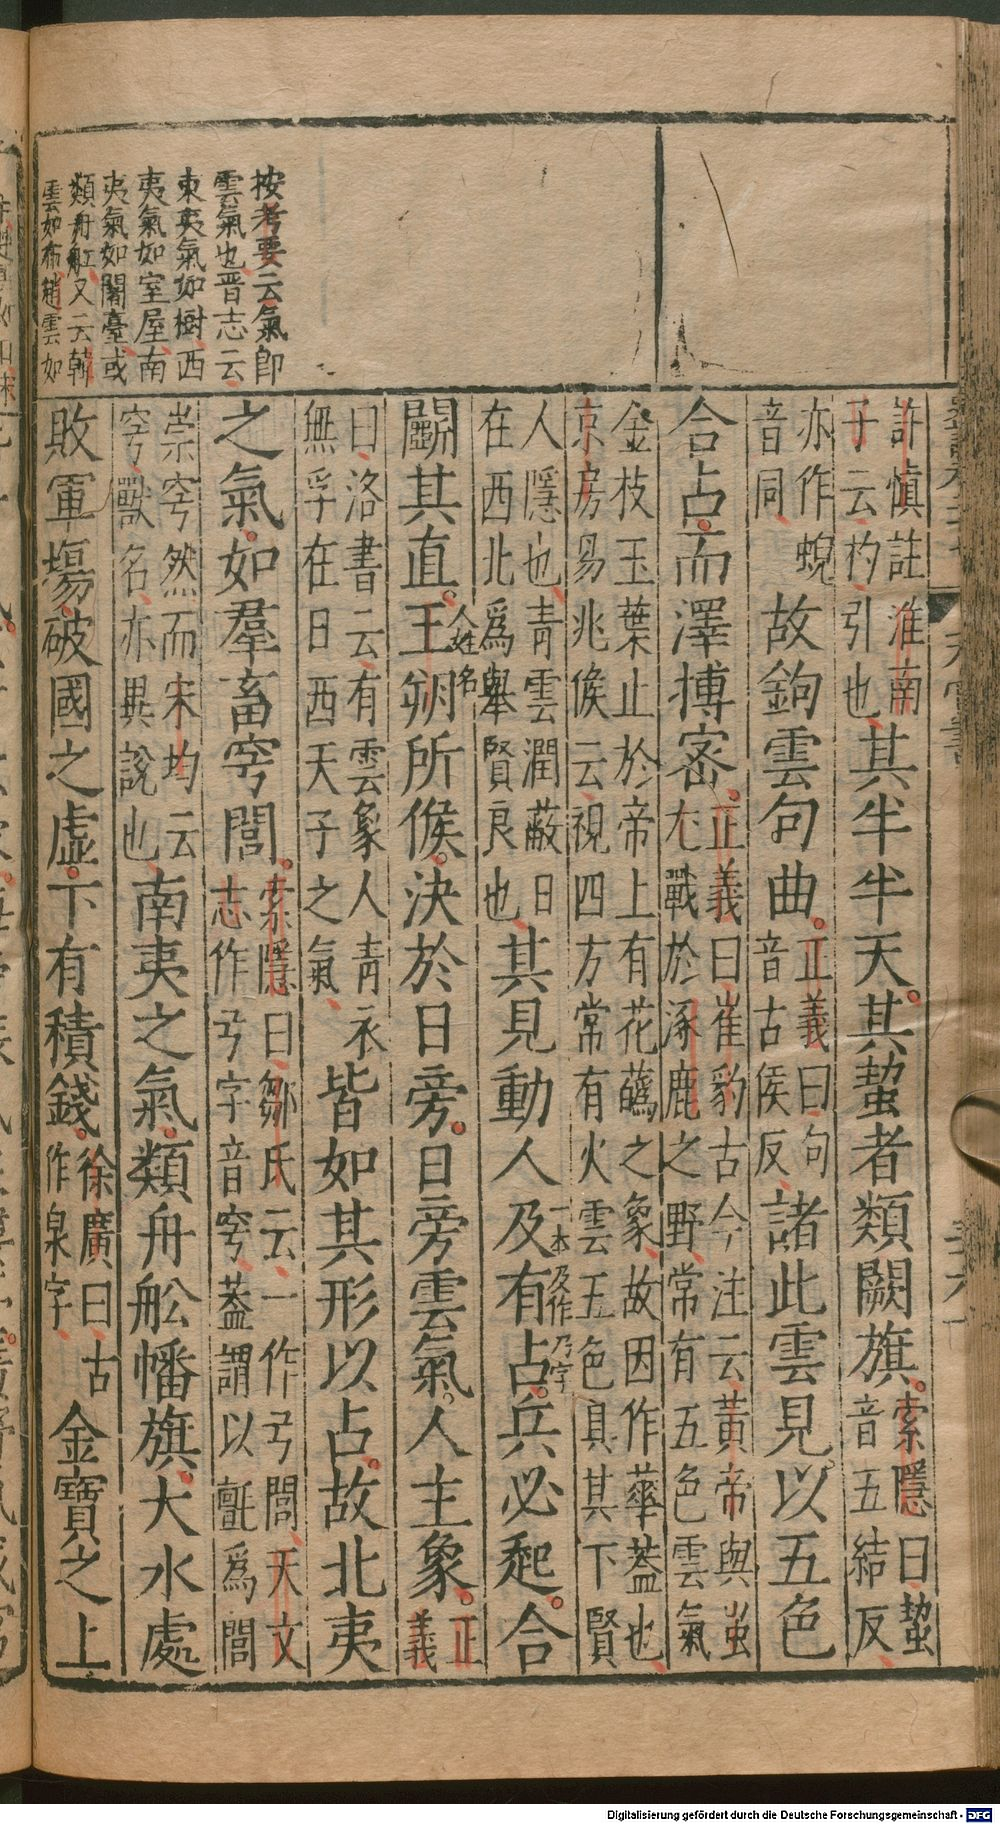 按考要云氣卽
雲氣也晋志云
東夷氣如樹西
夷氣如室屋南
夷氣如闍臺或
類舟舡又云韓
雲如布趙雲如
許慎註淮南
子云杓引也
其半半天其蛪者類闕旗
索隱曰蛪
音五結反
亦作蜺
音同
故鉤雲句曲
正義曰句
音古侯反
諸此雲見以五色
合占而澤摶密
正義曰崔豹古今注云黃帝與蚩
尢戰於涿鹿之野常有五色雲氣
金枝玉葉止於帝上有花蘤之象故因作華蓋也
京房易兆候云視四方常有火雲五色具其下賢
人隱也青雲潤蔽日
在西北爲舉賢良也
其見動人及
一本及作乃字
有占兵必起合
鬬其直王朔
人姓名
所候決於日旁日旁雲氣人主象
正
義
曰洛書云有雲象人青衣
無乎在日西天子之氣
皆如其形以占故北夷
之氣如羣畜穹閭
索隱曰鄒氏云一作弓閭天文
志作弓字音穹蓋謂以氈爲閭
崇穹然而宋均云
穹獸名亦異說也
南夷之氣類舟舩幡旗大水處
敗軍場破國之虛下有積錢
徐廣曰古
作泉字
金寶之上
Digitalisierung gefördert durch die Deutsche Forschungsgemeinschaft - DFG